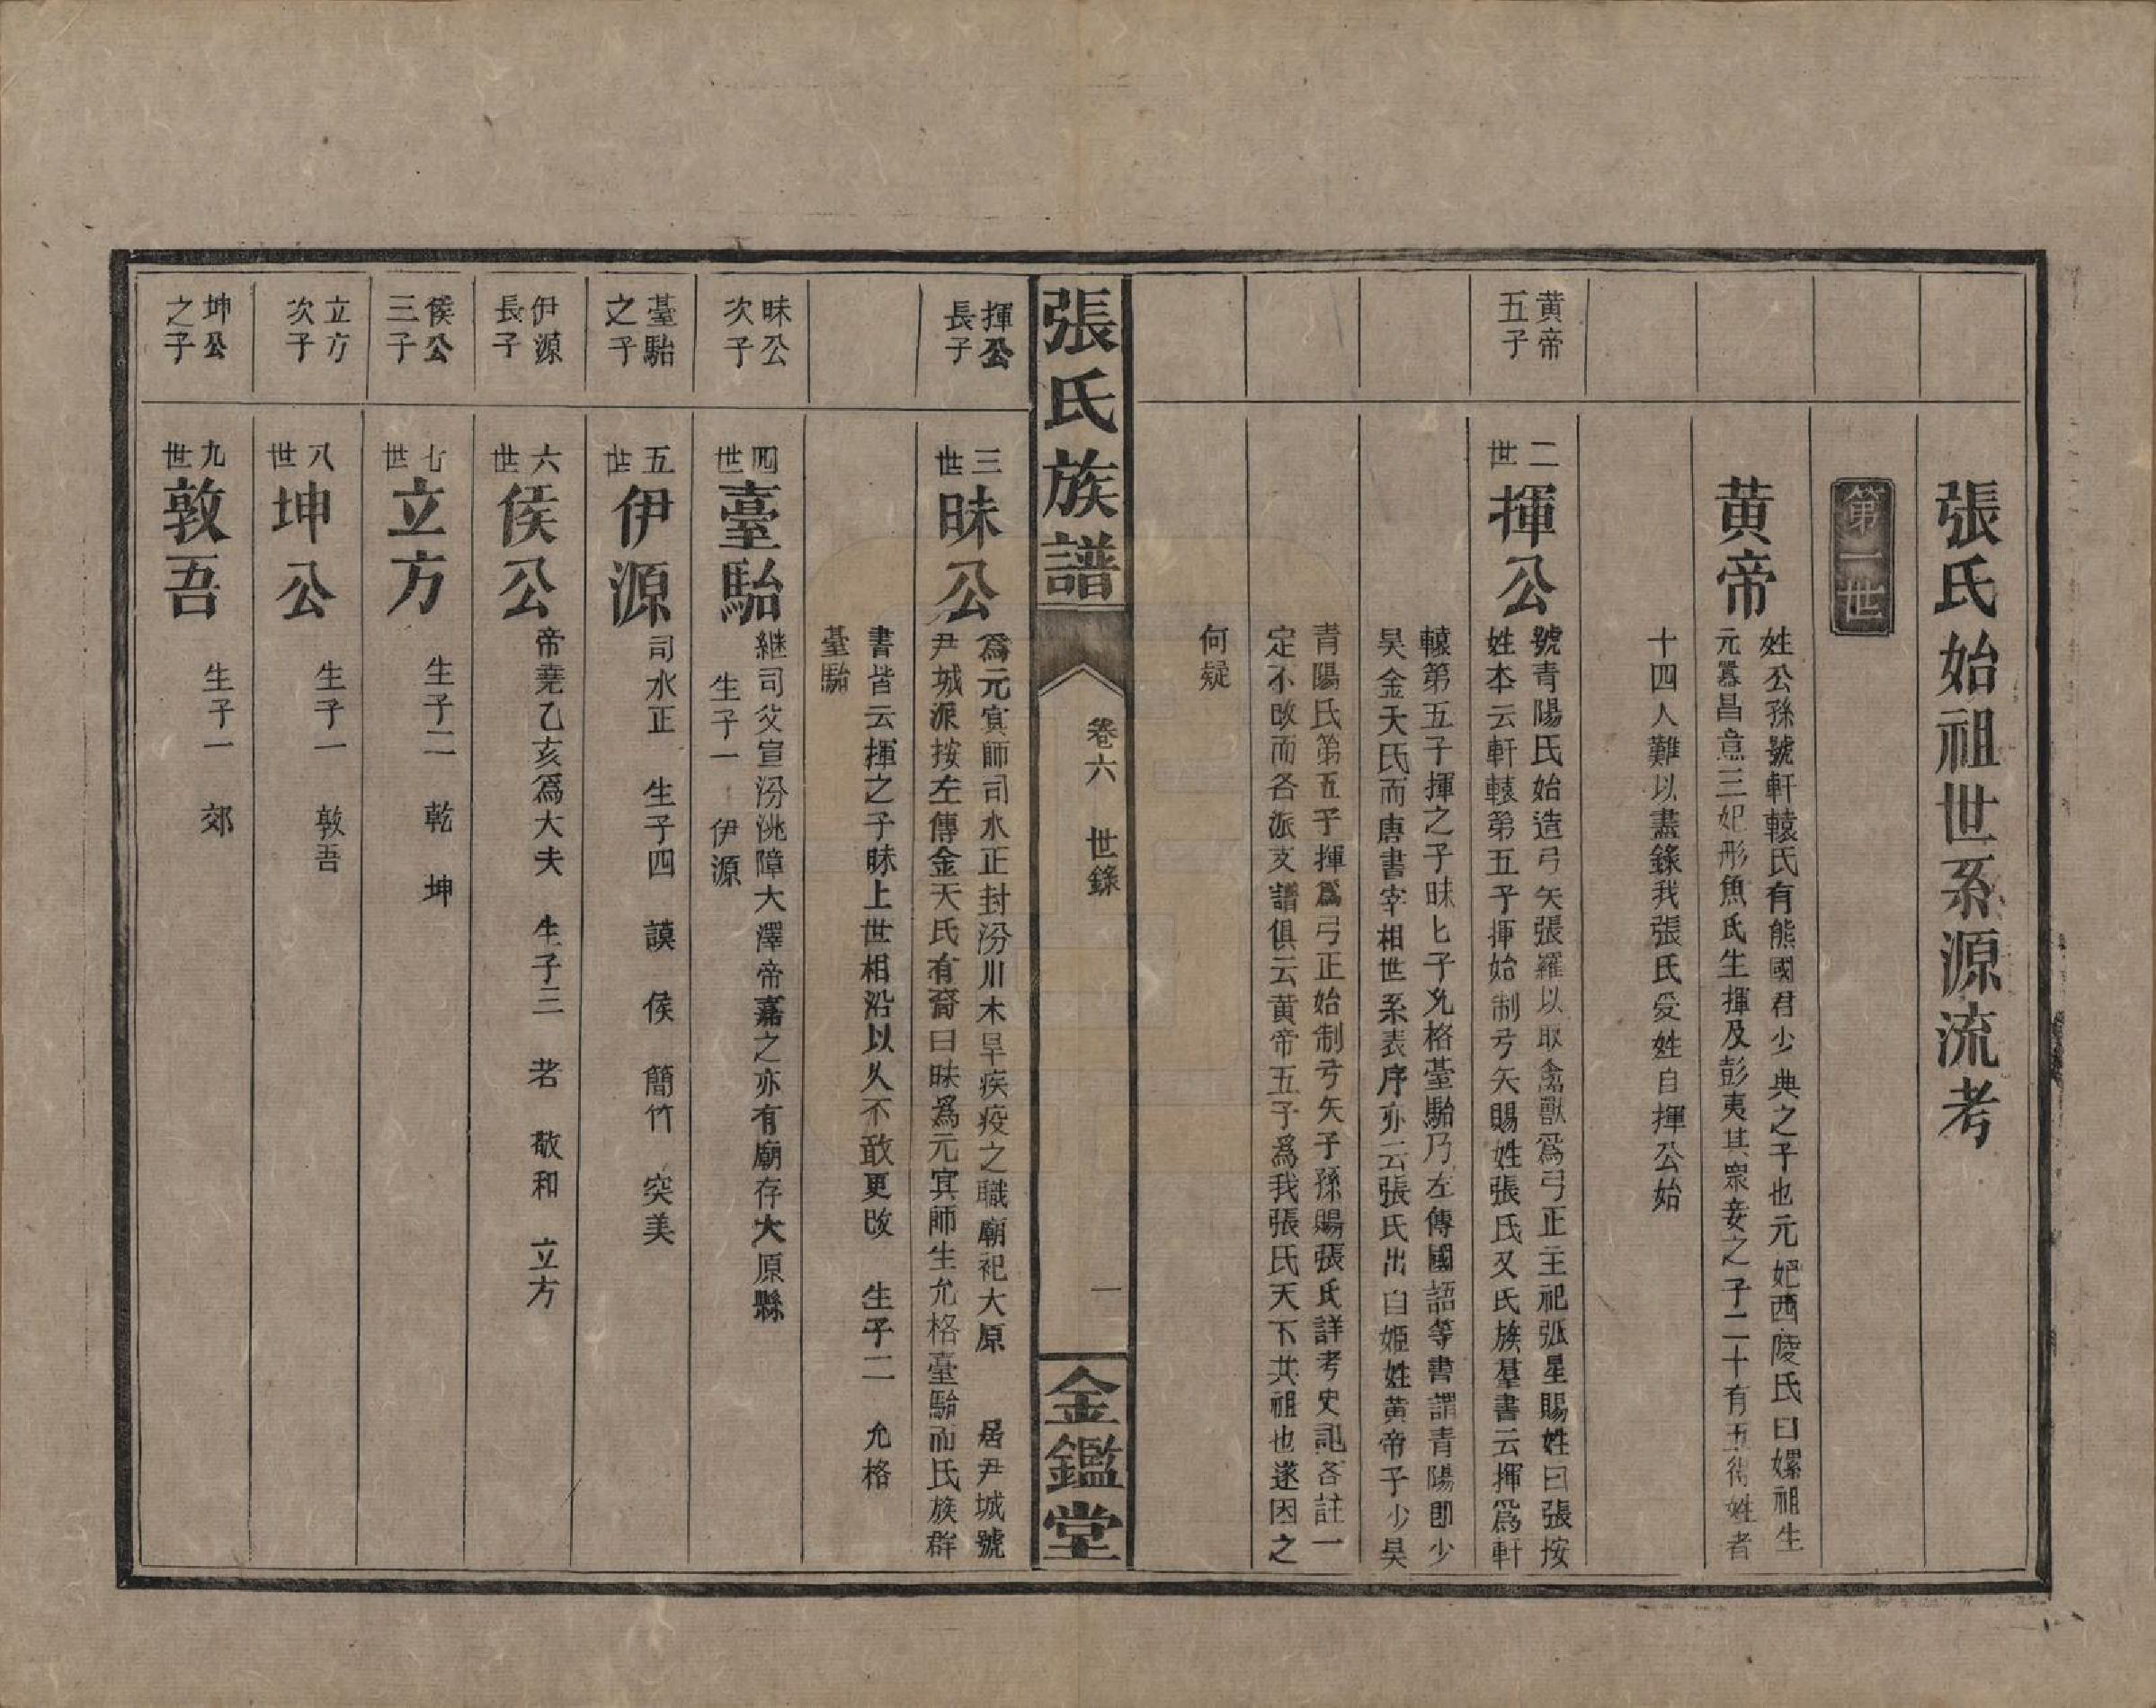 張氏始祖世系源流考
第一世
黄帝
姓公孫號軒轅氏有熊國君少典之子也元妃西陵氏曰嫘祖生
元囂昌意三妃彤魚氏生揮及彭夷其衆妾之子二十有五得姓者
十四人難以盡錄我張氏受姓自揮公始
黄帝
五子
二
世
揮公
號青陽氏始造弓矢張羅以取禽獸爲弓正主祀弧星賜姓曰張按
姓本云軒轅第五子揮始制弓矢賜姓張氏又氏族羣書云揮爲軒
轅第五子揮之子昧七子允格臺駘乃左傳國語等書謂青陽即少
昊金天氏而唐書宰相世系表序亦云張氏出自姬姓黄帝子少昊
青陽氏第五子揮爲弓正始制弓矢子孫賜張氏詳考史記各註一
定不改而各派支譜俱云黄帝五子爲我張氏天下共祖也遂因之
何疑
張氏族譜
卷六 世錄
一
金鑑堂
揮公
長子
三
世
昧公
爲元寅師司水正封汾川木旱疾疫之職廟祀大原 居尹城號
尹城派按左傳金天氏有裔曰昧爲元寅師生允格臺駘而氏族群
書皆云揮之子昧上世相沿以久不敢更改 生子二 允格
臺駘
昧公
次子
四
世
臺駘
継司父宣汾洮障大澤帝嘉之亦有廟存大原縣
生子一 伊源
臺駘
之子
五
世
伊源
司水正 生子四 謨 侯 簡竹 突美
伊源
長子
六
世
侯公
帝堯乙亥爲大夫 生子三 若 敬和 立方
侯公
三子
七
世
立方
生子二 乾 坤
立方
次子
八
世
坤公
生子一 敦吾
坤公
之子
九
世
敦吾
生子一 郊